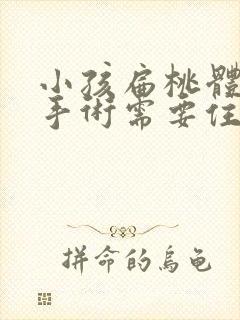 小孩扁桃體
手術需要住
拼命的烏龜